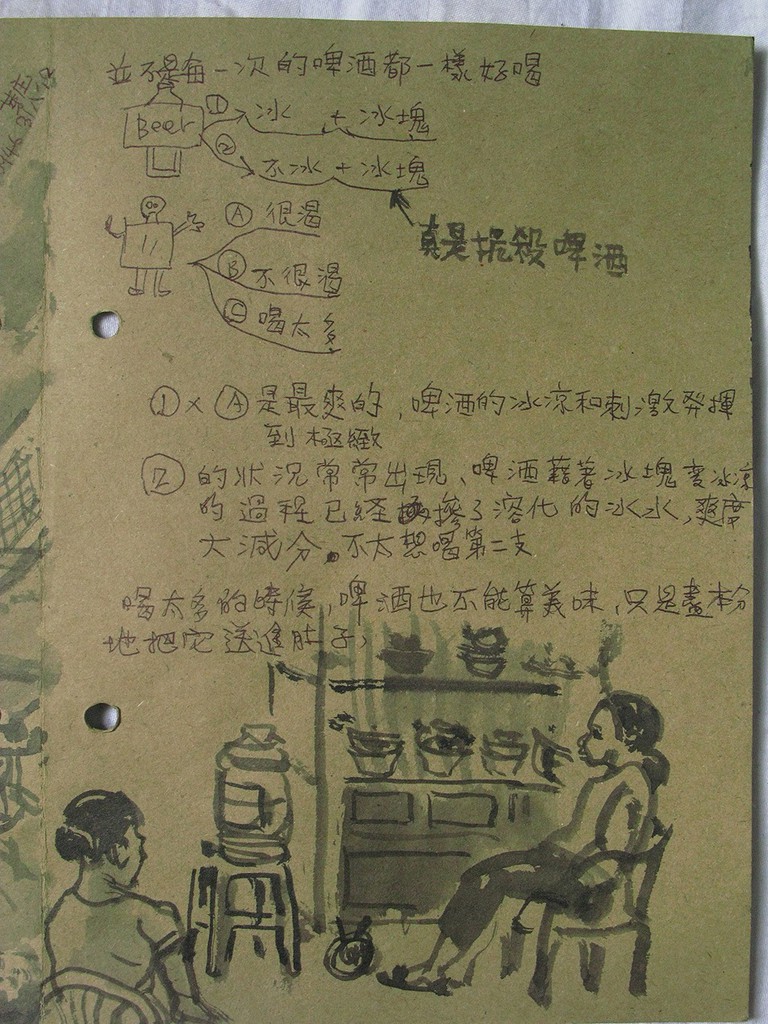 並不是每一次的啤酒都一樣好喝
Beer
① 冰 + 冰塊
② 不冰 + 冰塊
真是扼殺啤酒
Ⓐ 很渴
Ⓑ 不很渴
Ⓒ 喝太多
① x Ⓐ 是最爽的,啤酒的冰涼和刺激發揮
到極緻
② 的狀況常常出現、啤酒藉著冰塊變冰涼
的過程已經摻了溶化的冰水,爽度
大減分。不太想喝第二支
喝太多的時候,啤酒也不能算美味,只是盡本分
地把它送進肚子、